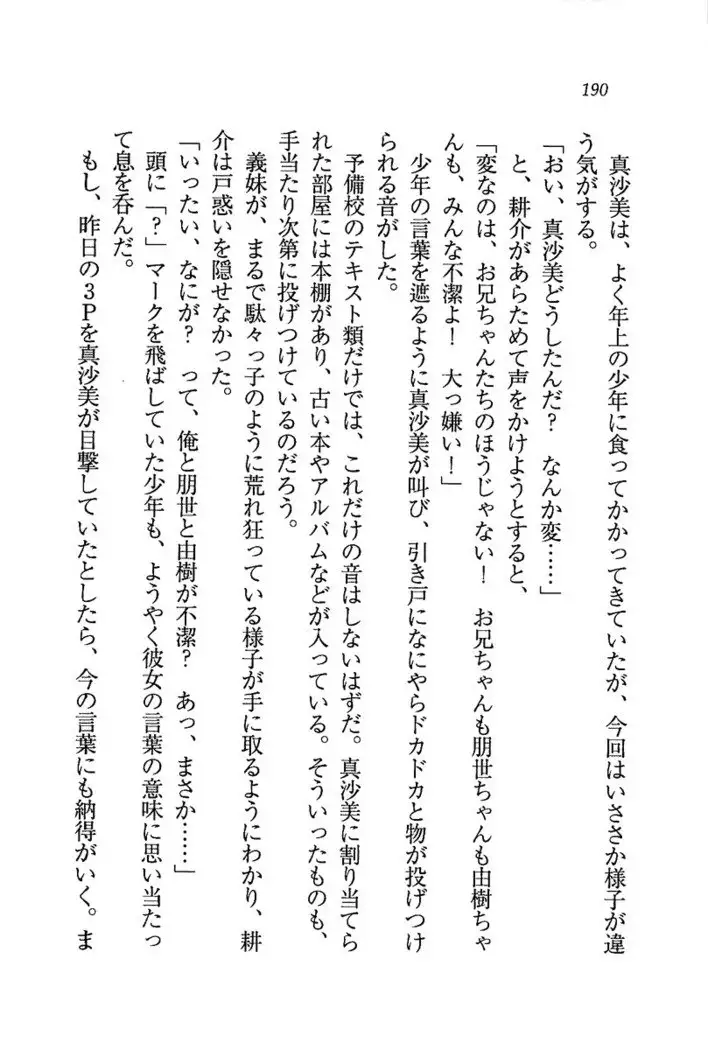 190
真沙美は、よく年上の少年に食ってかかってきていたが、今回はいささか様子が違
う気がする。
「おい、真沙美どうしたんだ？　なんか変……」
と、耕介があらためて声をかけようとすると、
「変なのは、お兄ちゃんたちのほうじゃない！　お兄ちゃんも朋世ちゃんも由樹ちゃ
んも、みんな不潔よ！　大っ嫌い！」
少年の言葉を遮るように真沙美が叫び、引き戸になにやらドカドカと物が投げつけ
られる音がした。
予備校のテキスト類だけでは、これだけの音はしないはずだ。真沙美に割り当てら
れた部屋には本棚があり、古い本やアルバムなどが入っている。そういったものも、
手当たり次第に投げつけているのだろう。
義妹が、まるで駄々っ子のように荒れ狂っている様子が手に取るようにわかり、耕
介は戸惑いを隠せなかった。
「いったい、なにが？　って、俺と朋世と由樹が不潔？　あっ、まさか……」
頭に「？」マークを飛ばしていた少年も、ようやく彼女の言葉の意味に思い当たっ
て息を呑んだ。
もし、昨日の３Ｐを真沙美が目撃していたとしたら、今の言葉にも納得がいく。ま